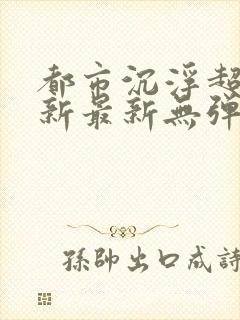 都市沉浮超
新最新無彈
孫帥出口成詩